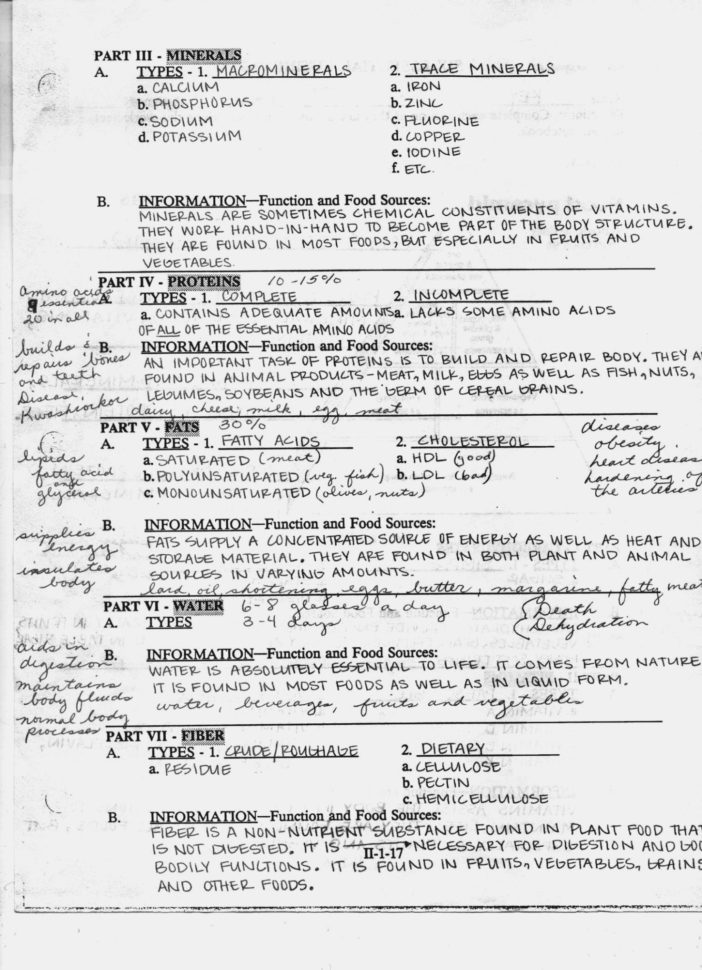 PART III - MINERALS
A. TYPES - 1. MACROMINERALS 2. TRACE MINERALS
a. CALCIUM a. IRON
b. PHOSPHORUS b. ZINC
c. SODIUM c. FLUORINE
d. POTASSIUM d. COPPER
e. IODINE
f. ETC.
B. INFORMATION—Function and Food Sources:
MINERALS ARE SOMETIMES CHEMICAL CONSTITUENTS OF VITAMINS.
THEY WORK HAND-IN-HAND TO BECOME PART OF THE BODY STRUCTURE.
THEY ARE FOUND IN MOST FOODS, BUT ESPECIALLY IN FRUITS AND
VEGETABLES.
PART IV - PROTEINS 10-15%
amino acids
9 essential
20 in all
A. TYPES - 1. COMPLETE 2. INCOMPLETE
a. CONTAINS ADEQUATE AMOUNTS a. LACKS SOME AMINO ACIDS
OF ALL OF THE ESSENTIAL AMINO ACIDS
builds &
repairs bones
and teeth
Disease,
Kwashiorkor
B. INFORMATION—Function and Food Sources:
AN IMPORTANT TASK OF PROTEINS IS TO BUILD AND REPAIR BODY. THEY A
FOUND IN ANIMAL PRODUCTS - MEAT, MILK, EGGS AS WELL AS FISH, NUTS,
LEGUMES, SOYBEANS AND THE GERM OF CEREAL GRAINS.
dairy, cheese, milk, egg, meat
PART V - FATS 30%
diseases
obesity.
heart diseas
hardening of
the arteries
A. TYPES - 1. FATTY ACIDS 2. CHOLESTEROL
lipids
fatty acid
and
glycerol
a. SATURATED (meat) a. HDL (good)
b. POLYUNSATURATED (veg, fish) b. LDL (bad)
c. MONOUNSATURATED (olives, nuts)
supplies
energy
insulates
body
B. INFORMATION—Function and Food Sources:
FATS SUPPLY A CONCENTRATED SOURCE OF ENERGY AS WELL AS HEAT AND
STORAGE MATERIAL. THEY ARE FOUND IN BOTH PLANT AND ANIMAL
SOURCES IN VARYING AMOUNTS.
lard, oil, shortening, eggs, butter, margarine, fatty meat
PART VI - WATER 6-8 glasses a day
A. TYPES 3-4 days
Death
Dehydration
aids in
digestion
maintains
body fluids
normal body
processes
B. INFORMATION—Function and Food Sources:
WATER IS ABSOLUTELY ESSENTIAL TO LIFE. IT COMES FROM NATURE
IT IS FOUND IN MOST FOODS AS WELL AS IN LIQUID FORM.
water, beverages, fruits and vegetables
PART VII - FIBER
A. TYPES - 1. CRUDE/ROUGHAGE 2. DIETARY
a. RESIDUE a. CELLULOSE
b. PECTIN
c. HEMICELLULOSE
B. INFORMATION—Function and Food Sources:
FIBER IS A NON-NUTRIENT SUBSTANCE FOUND IN PLANT FOOD THAT
IS NOT DIGESTED. IT IS NECESSARY FOR DIGESTION AND GOO
II-1-17
BODILY FUNCTIONS. IT IS FOUND IN FRUITS, VEGETABLES, GRAINS
AND OTHER FOODS.